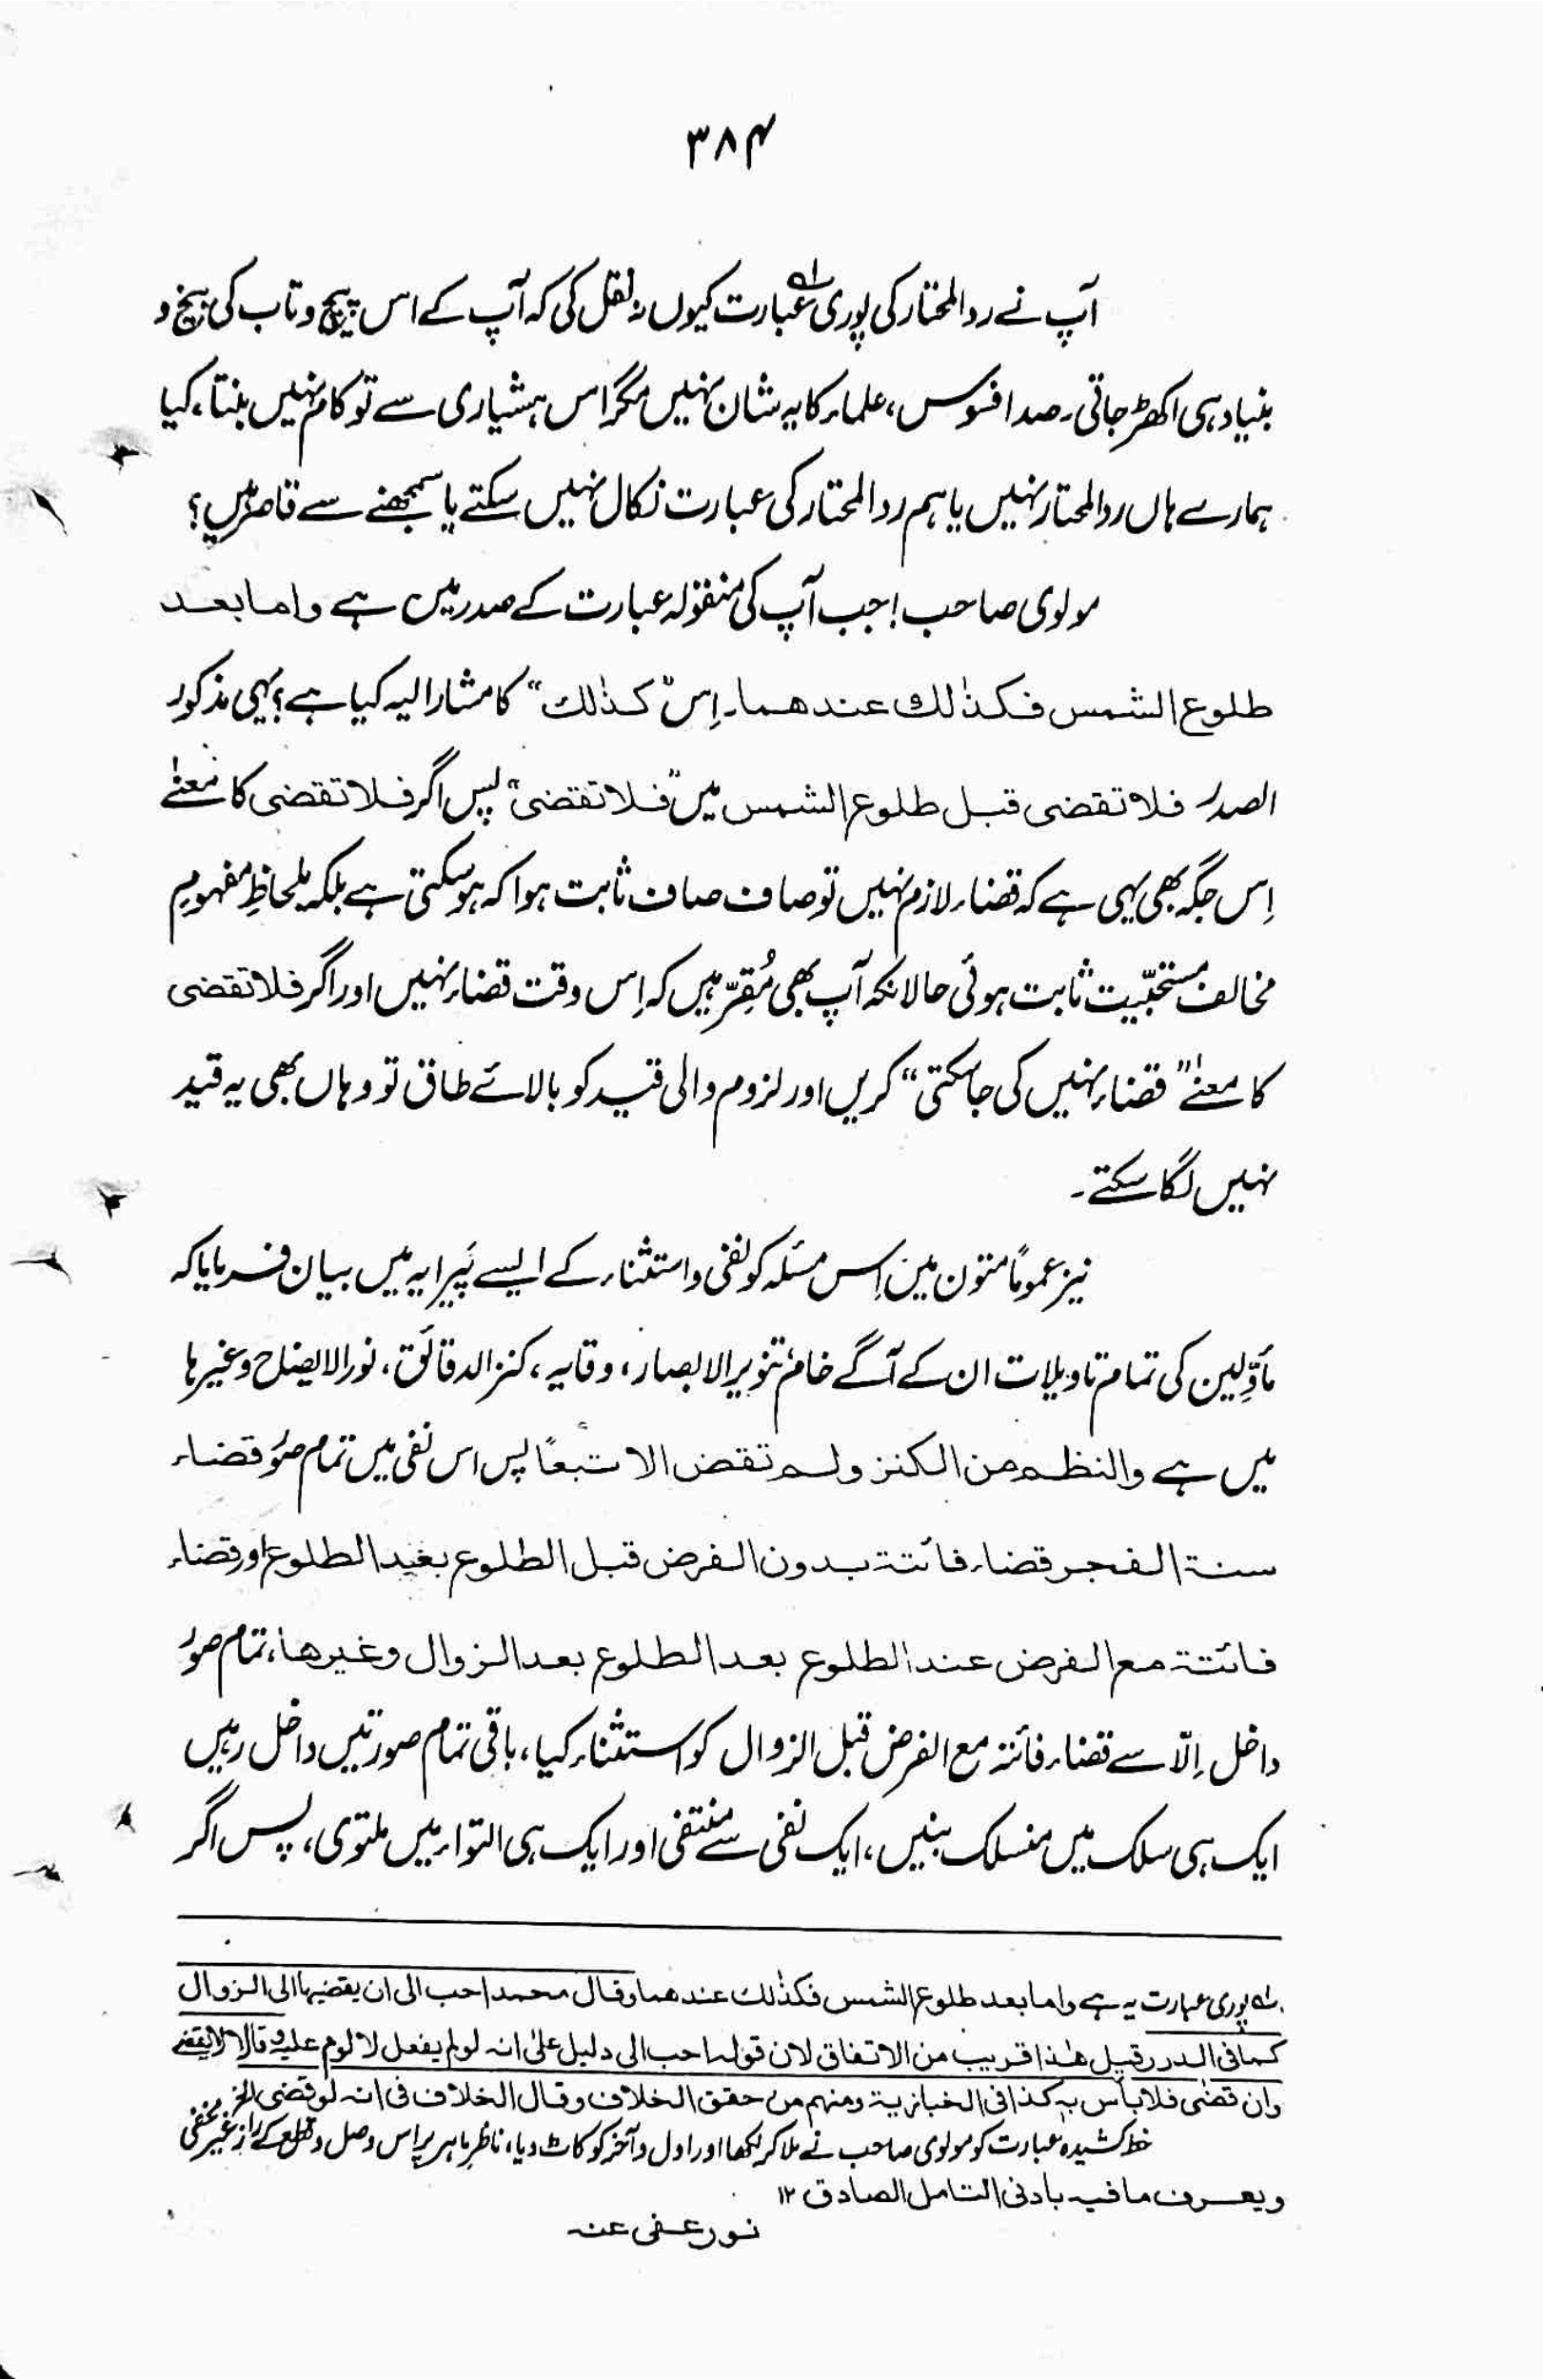 ۳۸۴
آپ نے ردالمحتار کی پوری عبارت کیوں نہ نقل کی کہ آپ کے اس پیچ و تاب کی بیخ و
بنیاد ہی اکھڑ جاتی۔ صد افسوس، علماء کا یہ شان نہیں مگر اس ہشیاری سے تو کام نہیں بنتا، کیا
ہمارے ہاں ردالمحتار نہیں یا ہم ردالمحتار کی عبارت نکال نہیں سکتے یا سمجھنے سے قاصر ہیں؟
مولوی صاحب! جب آپ کی منقولہ عبارت کے صدر میں ہے واما بعد
طلوع الشمس فکذٰلك عندهما۔ اِس "کذٰلك" کا مشار الیہ کیا ہے؟ یہی مذکور
الصدر فلا تقضی قبل طلوع الشمس میں "فلا تقضی" پس اگر فلا تقضی کا معنٰے
اِس جگہ بھی یہی ہے کہ قضاء لازم نہیں تو صاف صاف ثابت ہوا کہ ہو سکتی ہے بلکہ بلحاظِ مفہومِ
مخالف مستحبّیت ثابت ہوئی حالانکہ آپ بھی مُقِرّ ہیں کہ اِس وقت قضاء نہیں اور اگر فلا تقضی
کا معنٰے "قضاء نہیں کی جا سکتی" کریں اور لزوم والی قید کو بالائے طاق تو وہاں بھی یہ قید
نہیں لگا سکتے۔
نیز عموماً متون میں اِس مسئلہ کو نفی و استثناء کے ایسے پَیرایہ میں بیان فرمایا کہ
مأوِّلین کی تمام تاویلات ان کے آگے خام، تنویر الابصار، وقایہ، کنز الدقائق، نور الایضاح وغیرہا
میں ہے والنظم من الکنز ولم تقض الا تبعاً پس اس نفی میں تمام صُوَر قضاء
سنة الفجر قضاء فائتة بدون الفرض قبل الطلوع بعید الطلوع اور قضاء
فائتة مع الفرض عند الطلوع بعد الطلوع بعد الزوال وغیرها، تمام صور
داخل اِلّا سے قضاء فائتہ مع الفرض قبل الزوال کو استثناء کیا، باقی تمام صورتیں داخل رہیں
ایک ہی سلک میں منسلک بنیں، ایک نفی سے منتفی اور ایک ہی التواء میں ملتوی، پس اگر
لہ پوری عبارت یہ ہے واما بعد طلوع الشمس فکذٰلك عندهما وقال محمد احب الی ان یقضیها الی الزوال
کما فی الدرر قیل هٰذا قریب من الاتفاق لان قوله احب الی دلیل علٰی انه لو لم یفعل لا لوم علیه وقالا لا یقضے
وان قضٰی فلا بأس به کذا فی الخبازیة ومنهم من حقق الخلاف وقال الخلاف فی انه لو قضی الخ
خط کشیدہ عبارت کو مولوی صاحب نے ملا کر لکھا اور اول و آخر کو کاٹ دیا، ناظرِ ماہر پر اس وصل و قطع کے راز غیر مخفی
ویعرف ما فیه بادنی التامل الصادق ۱۲
نور عفی عنه